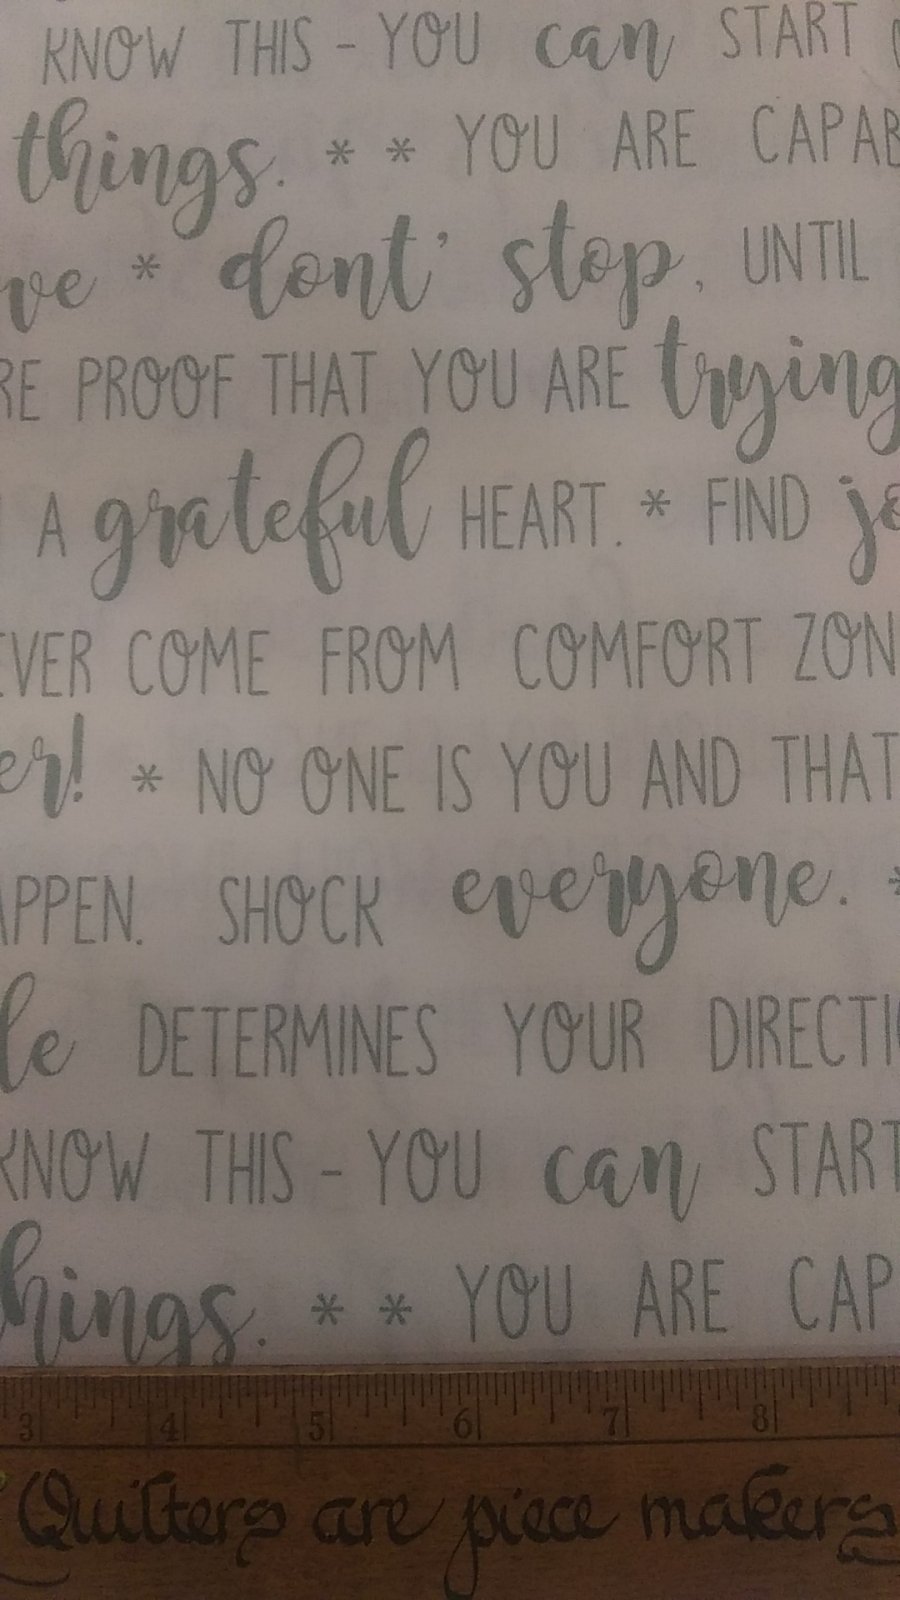 KNOW THIS - YOU can START
things. * * YOU ARE CAPAB
ve * dont' stop, UNTIL
RE PROOF THAT YOU ARE trying
A grateful HEART. * FIND jo
EVER COME FROM COMFORT ZON
er! * NO ONE IS YOU AND THAT
APPEN. SHOCK everyone. *
le DETERMINES YOUR DIRECTI
KNOW THIS - YOU can START
hings. * * YOU ARE CAP
3 4 5 6 7 8
Quilters are piece makers